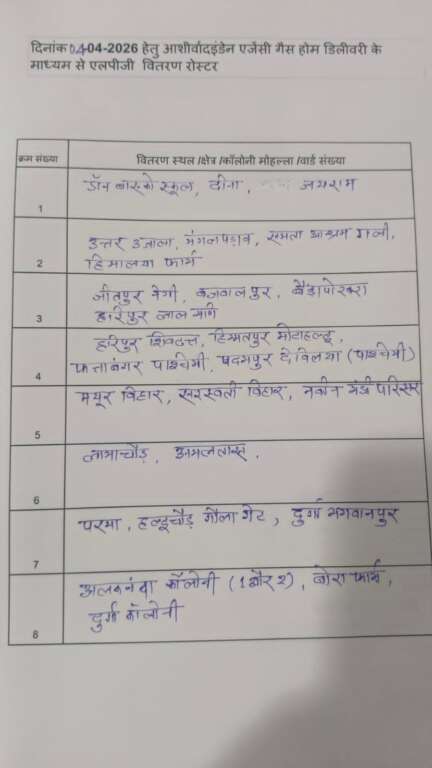 दिनांक 04-04-2026 हेतु आशीर्वादइंडेन एजेंसी गैस होम डिलीवरी के
माध्यम से एलपीजी वितरण रोस्टर
क्रम संख्या
वितरण स्थल /क्षेत्र /कॉलोनी मोहल्ला /वार्ड संख्या
1
डॉन बास्को स्कूल, दीना, जयराम
2
उत्तर उजाला, मंगलपड़ाव, समता आश्रम गली,
हिमालया फार्म
3
जीतपुर नेगी, बैड़ापोखरा
हरिपुर लाल मणि
4
हरिपुर शिवदत्त, हिम्मतपुर मोटाहल्दू,
पश्चिमी, पदमपुर देवलिया (पश्चिमी)
5
मयूर विहार, सरस्वती विहार, नवीन मंडी परिसर
6
लामाचौड़, अमलतास,
7
परमा, हल्दूचौड़ गौला गेट, दुर्गा भगवानपुर
8
अलकनंदा कॉलोनी (1 और 2), बोरा फार्म,
दुर्गा कॉलोनी